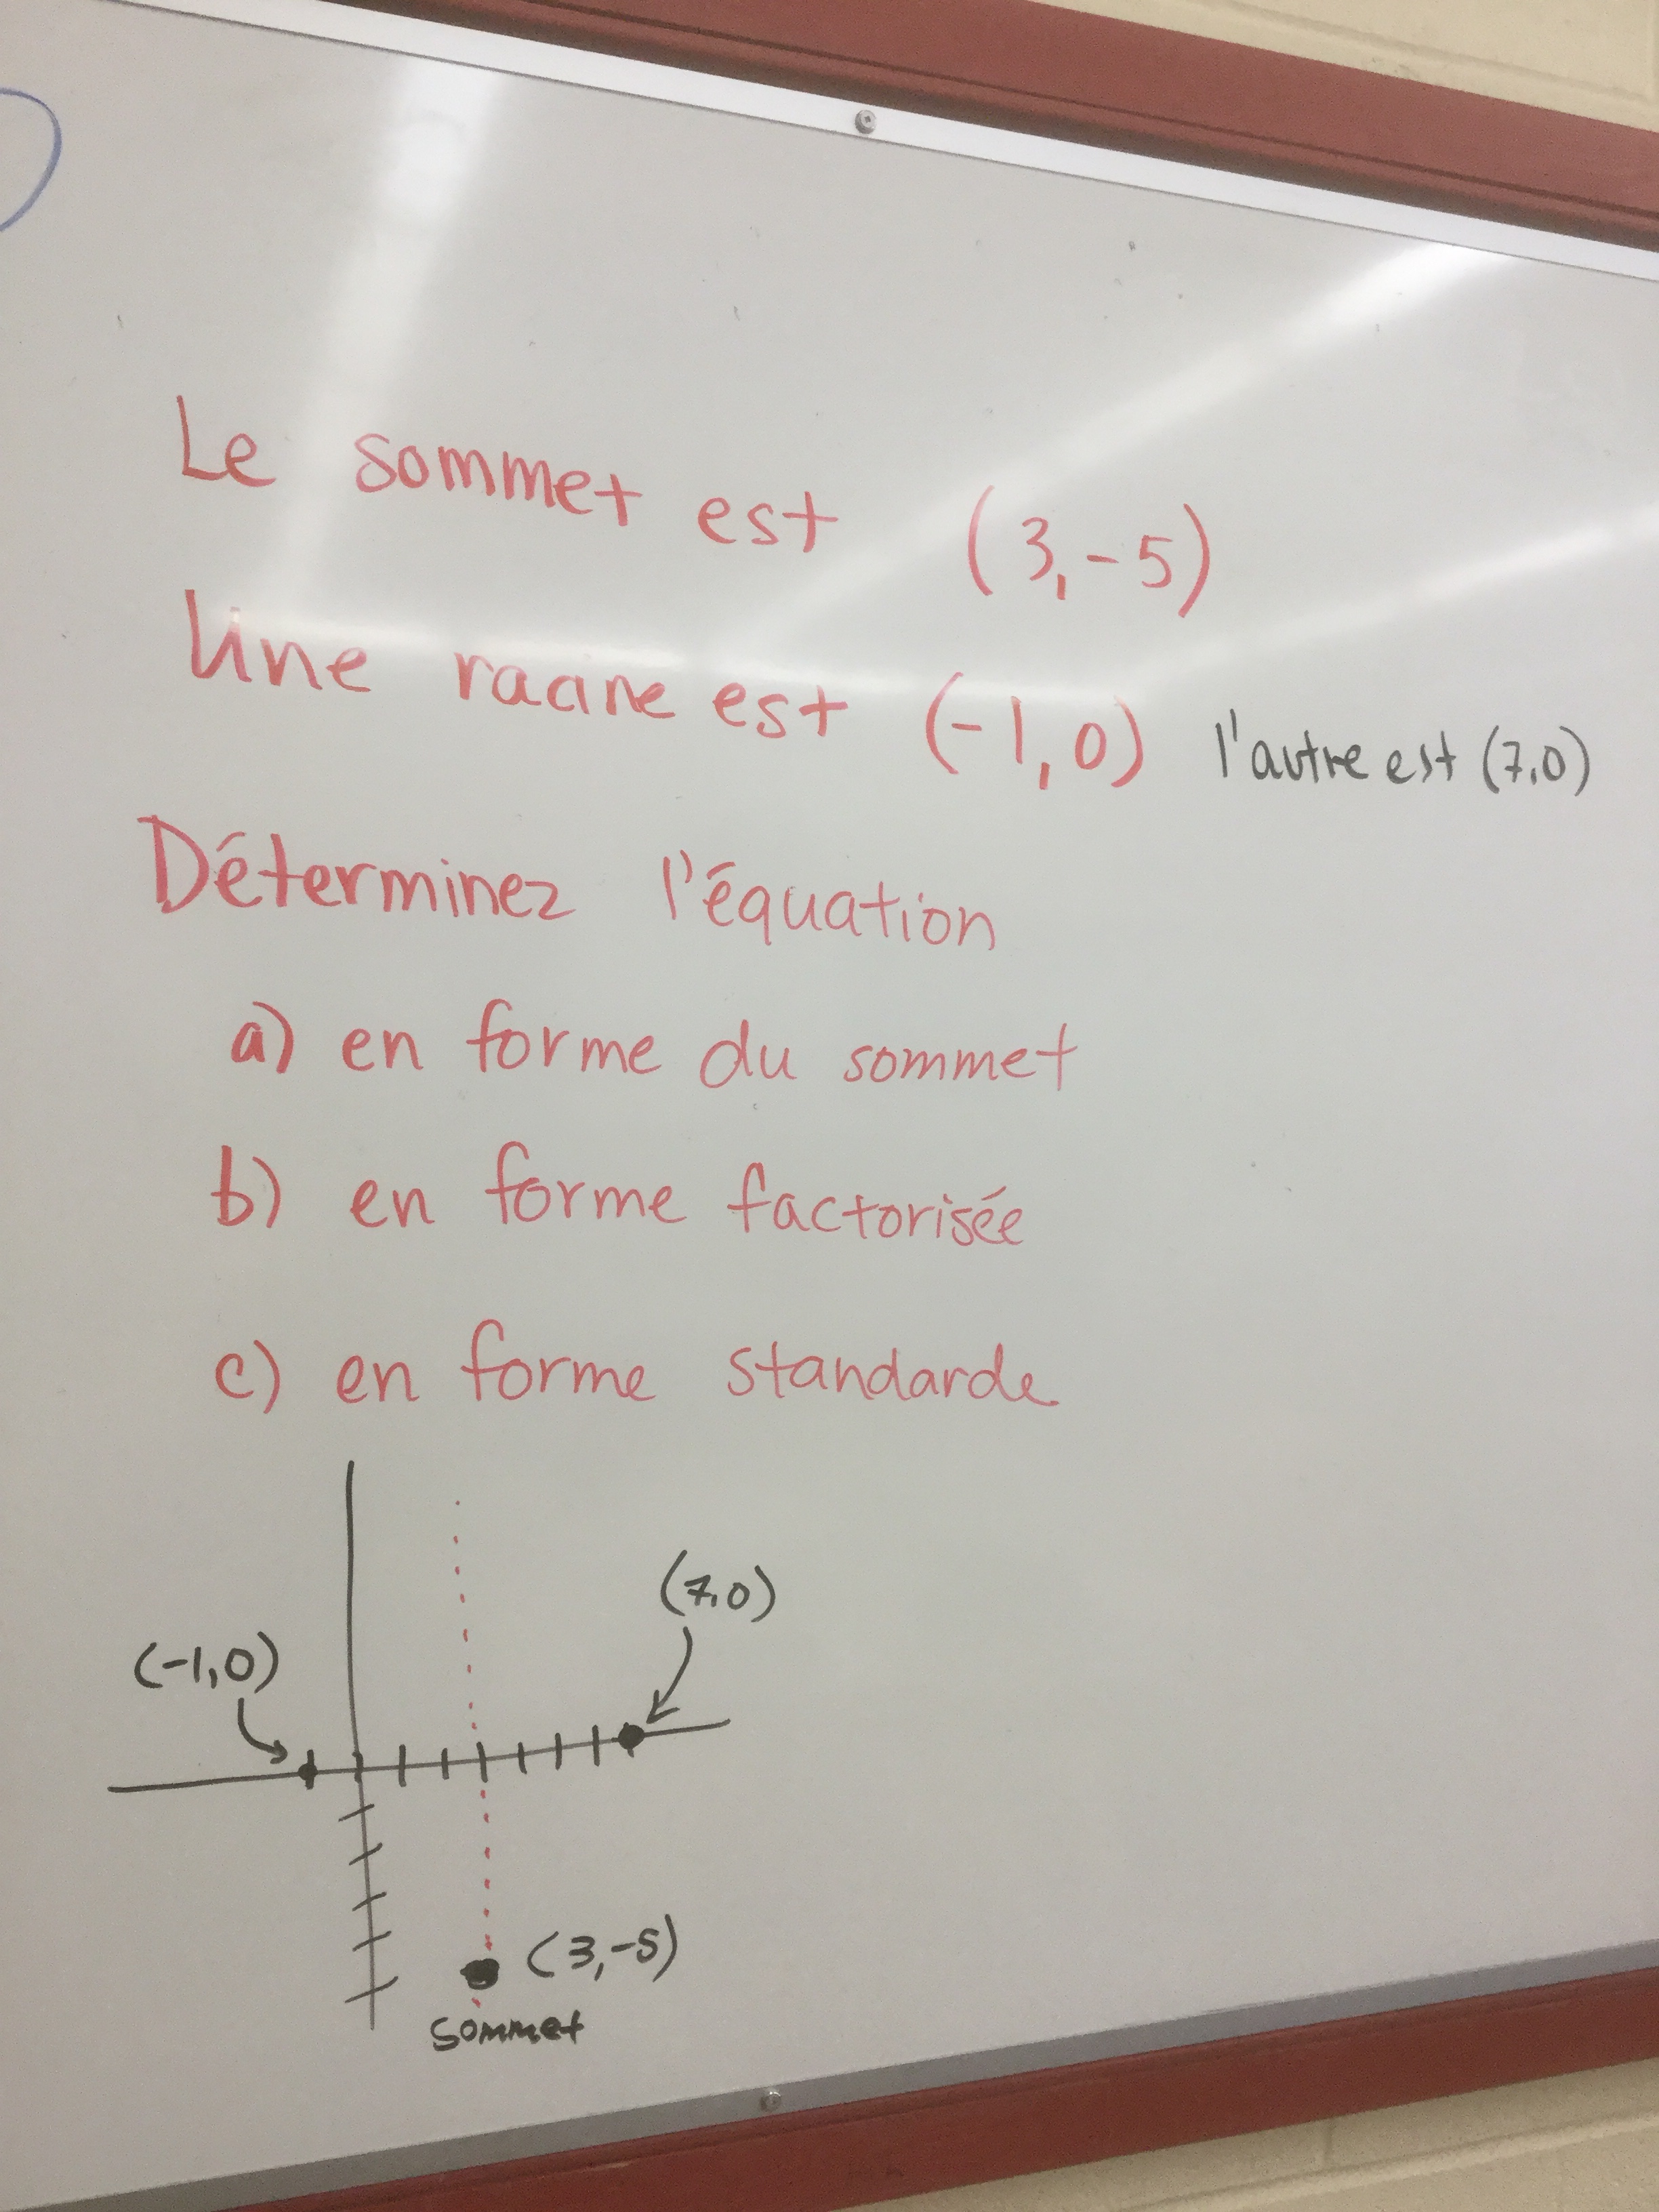 Le sommet est (3,-5)
Une racine est (-1,0) l'autre est (7,0)
Déterminez l'équation
a) en forme du sommet
b) en forme factorisée
c) en forme standarde
(7,0)
(-1,0)
(3,-5)
sommet